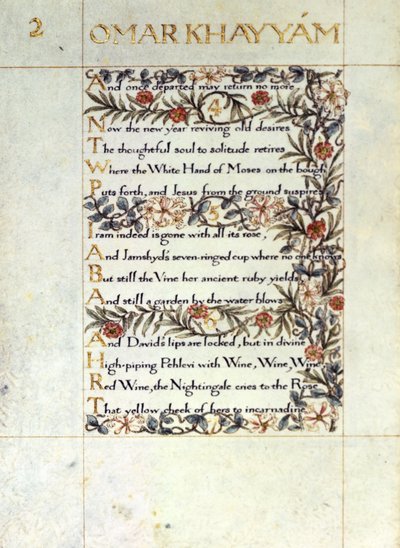 2 OMAR KHAYYÁM
And once departed may return no more
4
Now the new year reviving old desires
The thoughtful soul to solitude retires
Where the White Hand of Moses on the bough
Puts forth, and Jesus from the ground suspires
5
Iram indeed is gone with all its rose,
And Jamshyd's seven-ringed cup where no one knows
But still the Vine her ancient ruby yields
And still a garden by the water blows
6
And David's lips are locked, but in divine
High-piping Pehlevi with Wine, Wine, Wine
Red Wine, the Nightingale cries to the Rose
That yellow cheek of hers to incarnadine